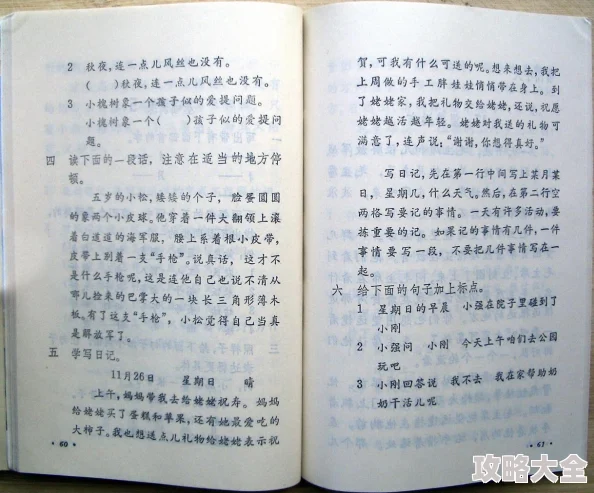 2 秋夜,连一点儿风丝也没有。
(    )秋夜,连一点儿风丝也没有。
3 小槐树象一个孩子似的爱提问题。
小槐树象一个(    )孩子似的爱提问
题。
四 读下面的一段话,注意在适当的地方停
顿。
五岁的小松,矮矮的个子,脸蛋圆圆
的象两个小皮球。他穿着一件大翻领上滚
着白道道的海军服,腰上系着根小皮带,
皮带上别着一支“手枪”。说真话,这才不
是什么手枪呢,这是连他自己也说不清从
哪儿捡来的巴掌大的一块长三角形薄木
板。有了这支“手枪”,小松觉得自己当真
是解放军了。
五 学写日记。
11月26日 星期日 晴
上午,妈妈带我去给姥姥祝寿。妈妈
给姥姥买了蛋糕和苹果,还有她最爱吃的
大柿子。我也想送点儿礼物给姥姥表示祝
·60·
贺,可我有什么可送的呢。想来想去,我把
上周做的手工胖娃娃悄悄带在身上。到
了姥姥家,我把礼物交给姥姥,还说,祝愿
姥姥越活越年轻。姥姥对我送的礼物可
满意了,连声说:“谢谢,你想得真好。”
写日记,先在第一行中间写上某月某
日,星期几,什么天气。然后,在第二行空
两格写要记的事情。一天有许多活动,要
拣重要的记。如果记的事情有几件,一件
事情要写一段,不要把几件事情写在一
起。
六 给下面的句子加上标点。
1 星期日的早晨 小强在院子里碰到了
小刚
2 小强问 小刚 今天上午咱们去公园
玩吧
3 小刚回答说 我不去 我在家帮助奶
奶干活儿呢
·61·
攻略大全